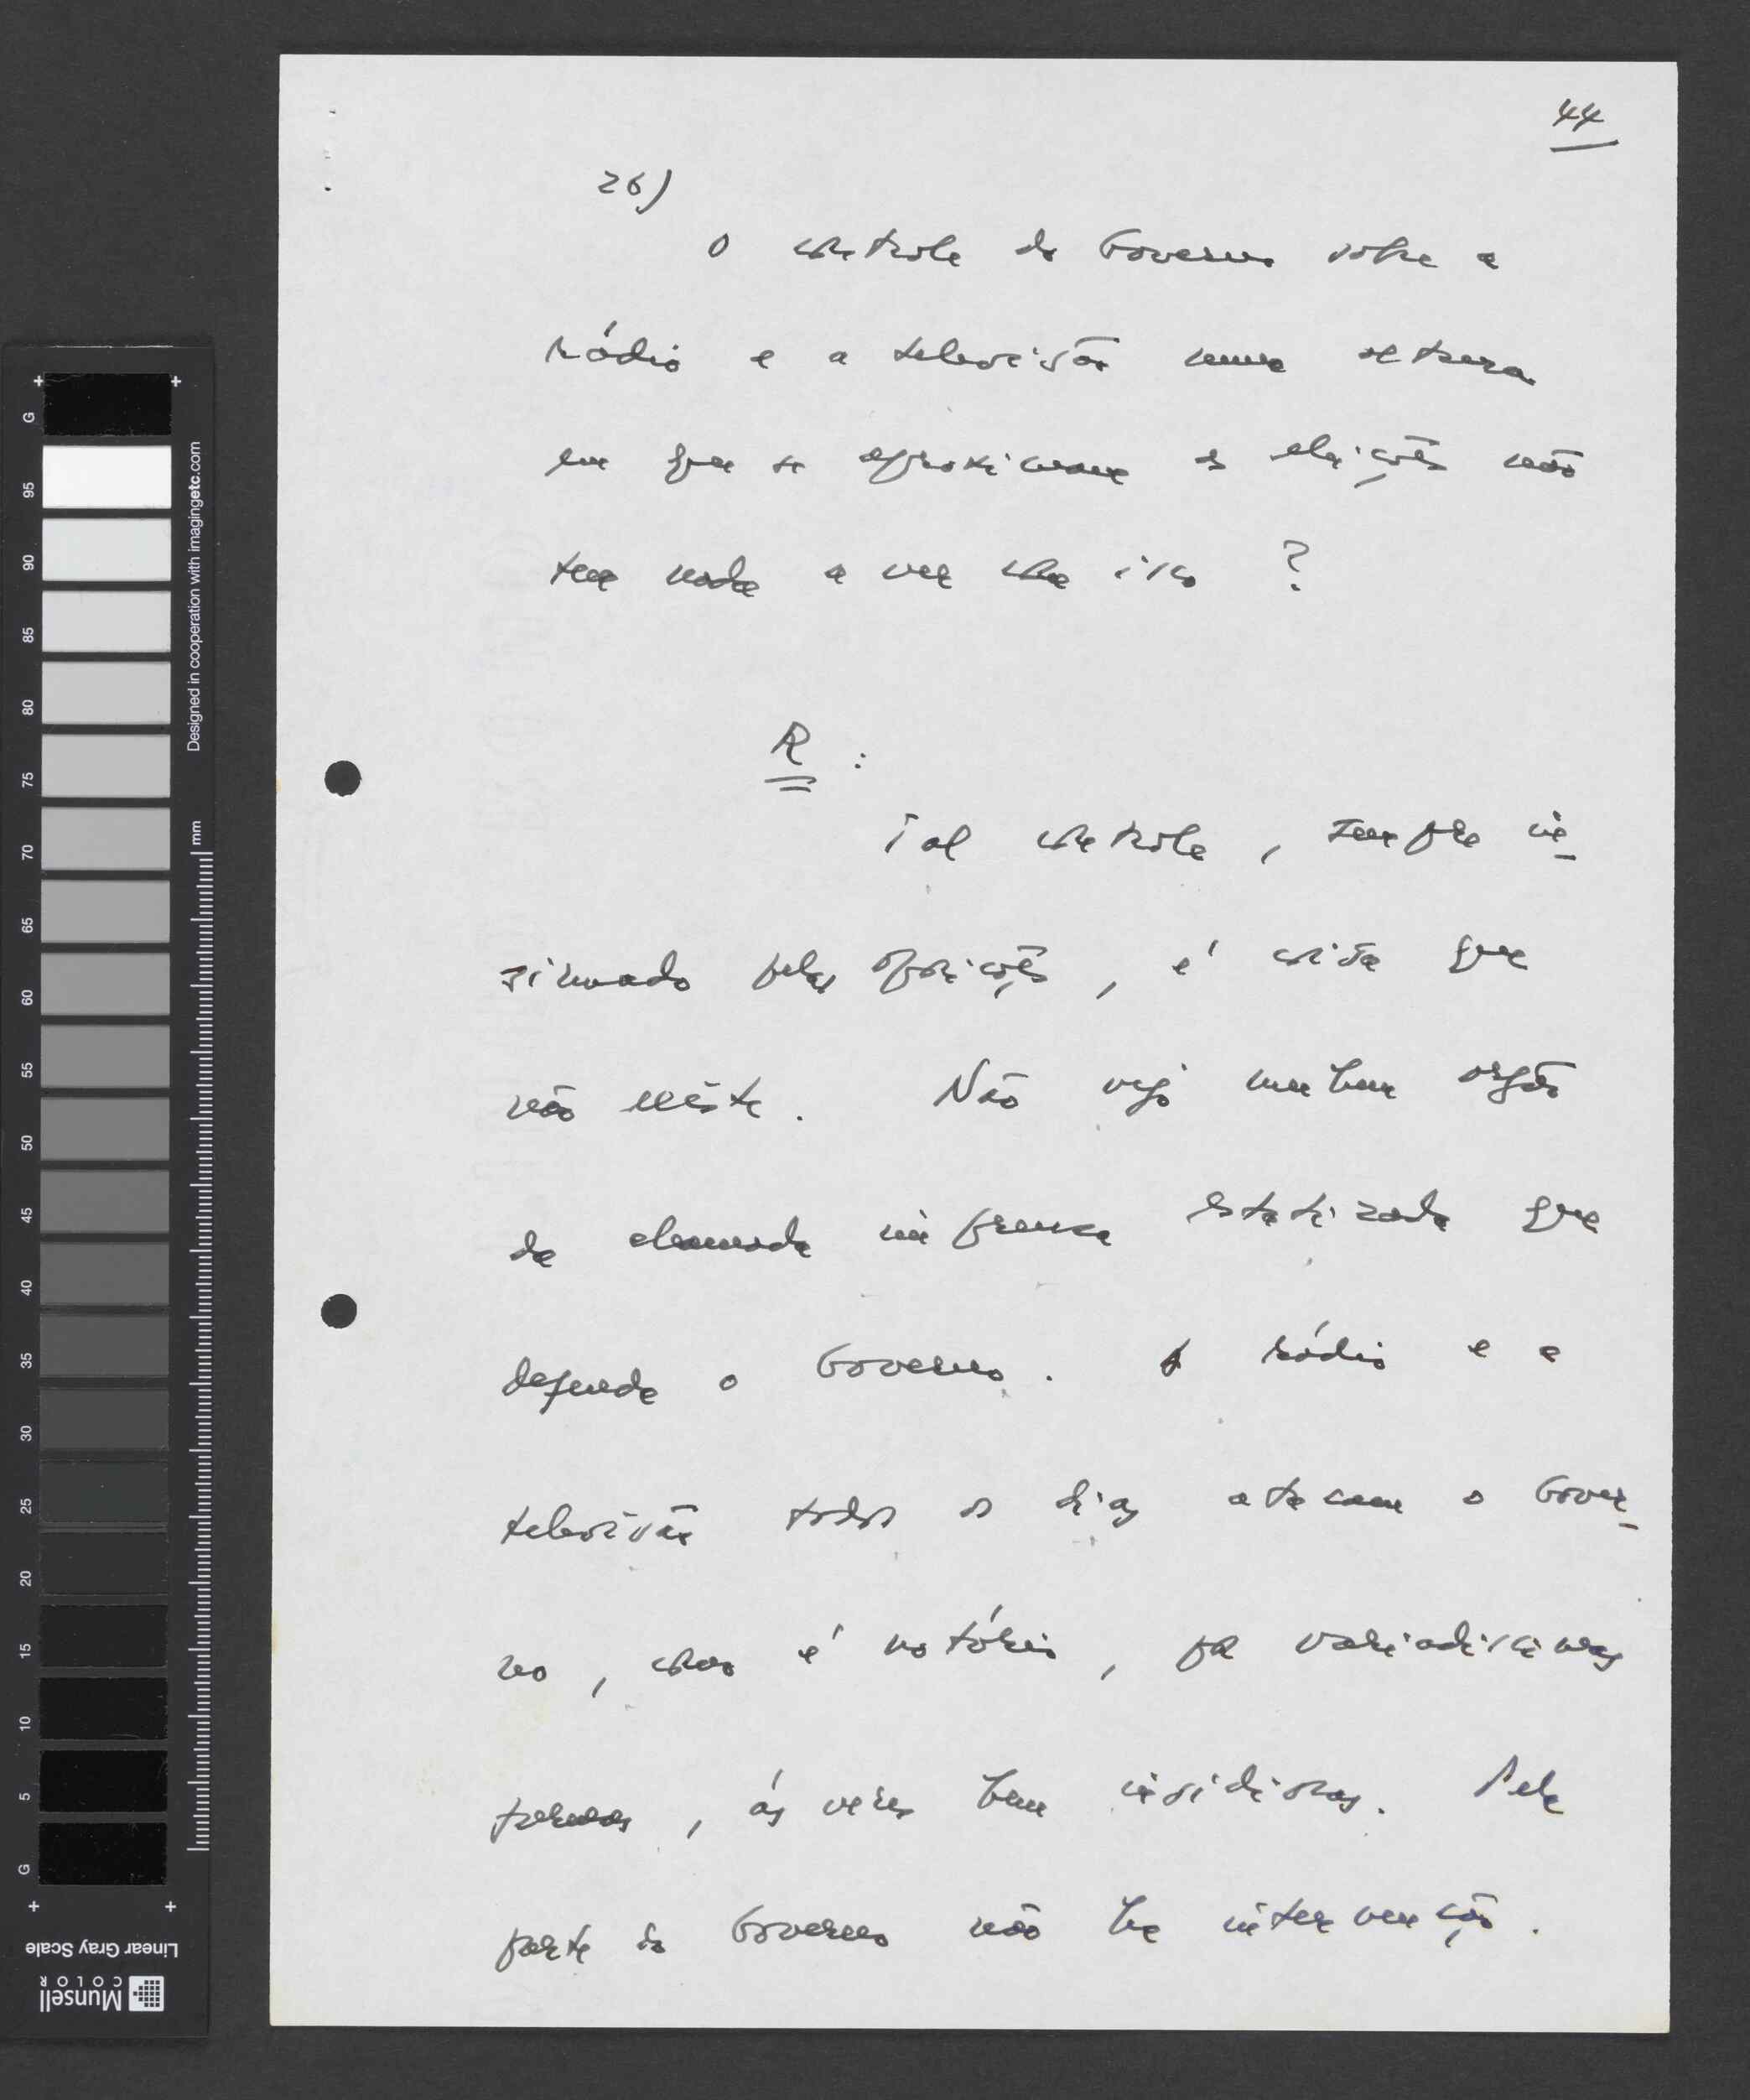 44
26)
O controle do Governo sobre a
rádio e a televisão numa altura
em que se aproximam as eleições não
tem nada a ver com isso ?
R :
Tal controle, sempre in-
sinuado pelas oposições, é coisa que
não existe. Não vejo nenhum orgão
da chamada imprensa estatizada que
defenda o Governo. A rádio e a
televisão todos os dias atacam o Gover-
no, como é notório, por variadissimas
formas, ás vezes bem insidiosas. Pela
parte do Governo não há intervenção.
G
95
90
85
80
75
70
65
60
55
50
45
40
35
30
25
20
15
10
5
G
mm
Designed in cooperation with imagingetc.com
Linear Gray Scale
Munsell
COLOR